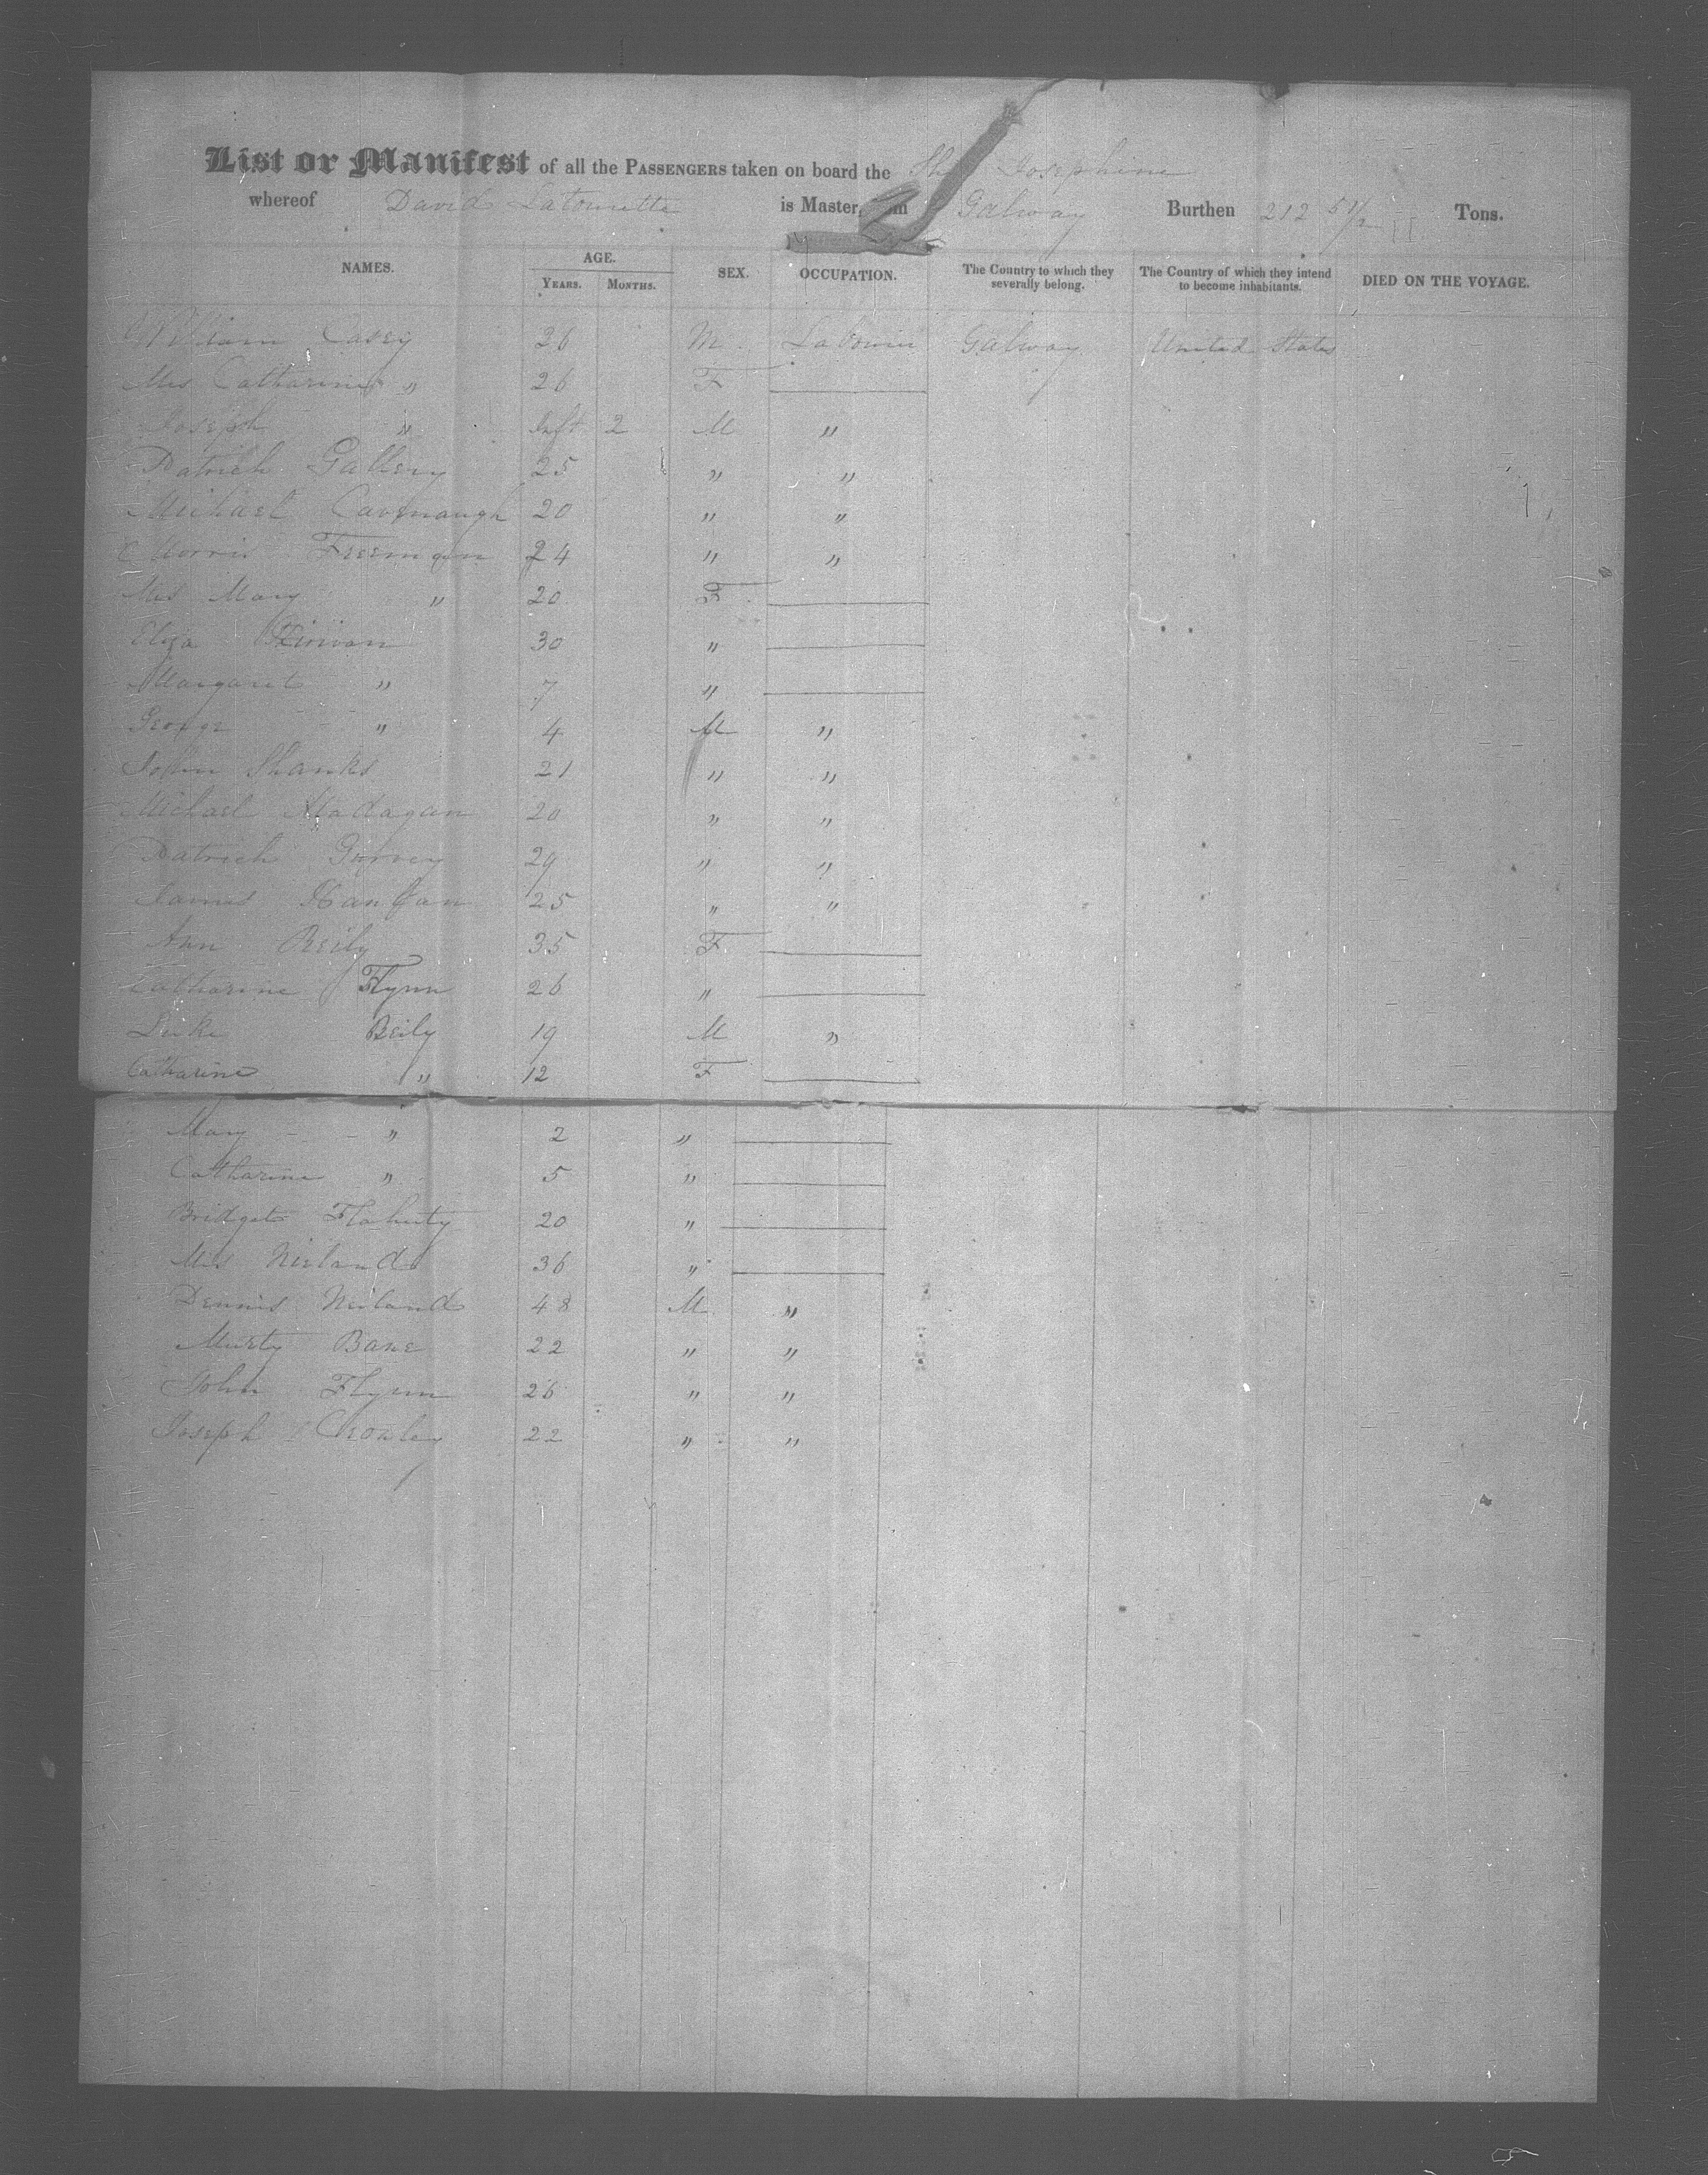 List or Manifest of all the PASSENGERS taken on board the Josephine
whereof David Latourette is Master, Galway Burthen 212 51/ Tons.
NAMES. AGE. SEX. OCCUPATION. The Country to which they severally belong. The Country of which they intend to become inhabitants. DIED ON THE VOYAGE.
YEARS. MONTHS.
William Casey 36 M. Galway United States
Mrs Catharine " 26 F
Joseph " Inft 2 M "
Patrick Gallery 25 " "
Michael Cavenaugh 20 " "
Morris Freeman 24 " "
Mrs Mary " 20 F
Eliza Kirwan 30 "
Margaret " 7 "
George " 4 M "
John Shanks 21 " "
Michael Madagan 20 " "
Patrick 29 " "
James 25 " "
Ann Reily 35 F
Catharine Flynn 26 "
Luke Reily 19 M "
Catharine " 12 F
Mary " 2 "
Catharine " 5 "
Bridget Flaherty 20 "
Mrs Nieland 36 "
Dennis Neiland 48 M "
Murty Bane 22 " "
John Flynn 26 " "
Joseph 22 " "